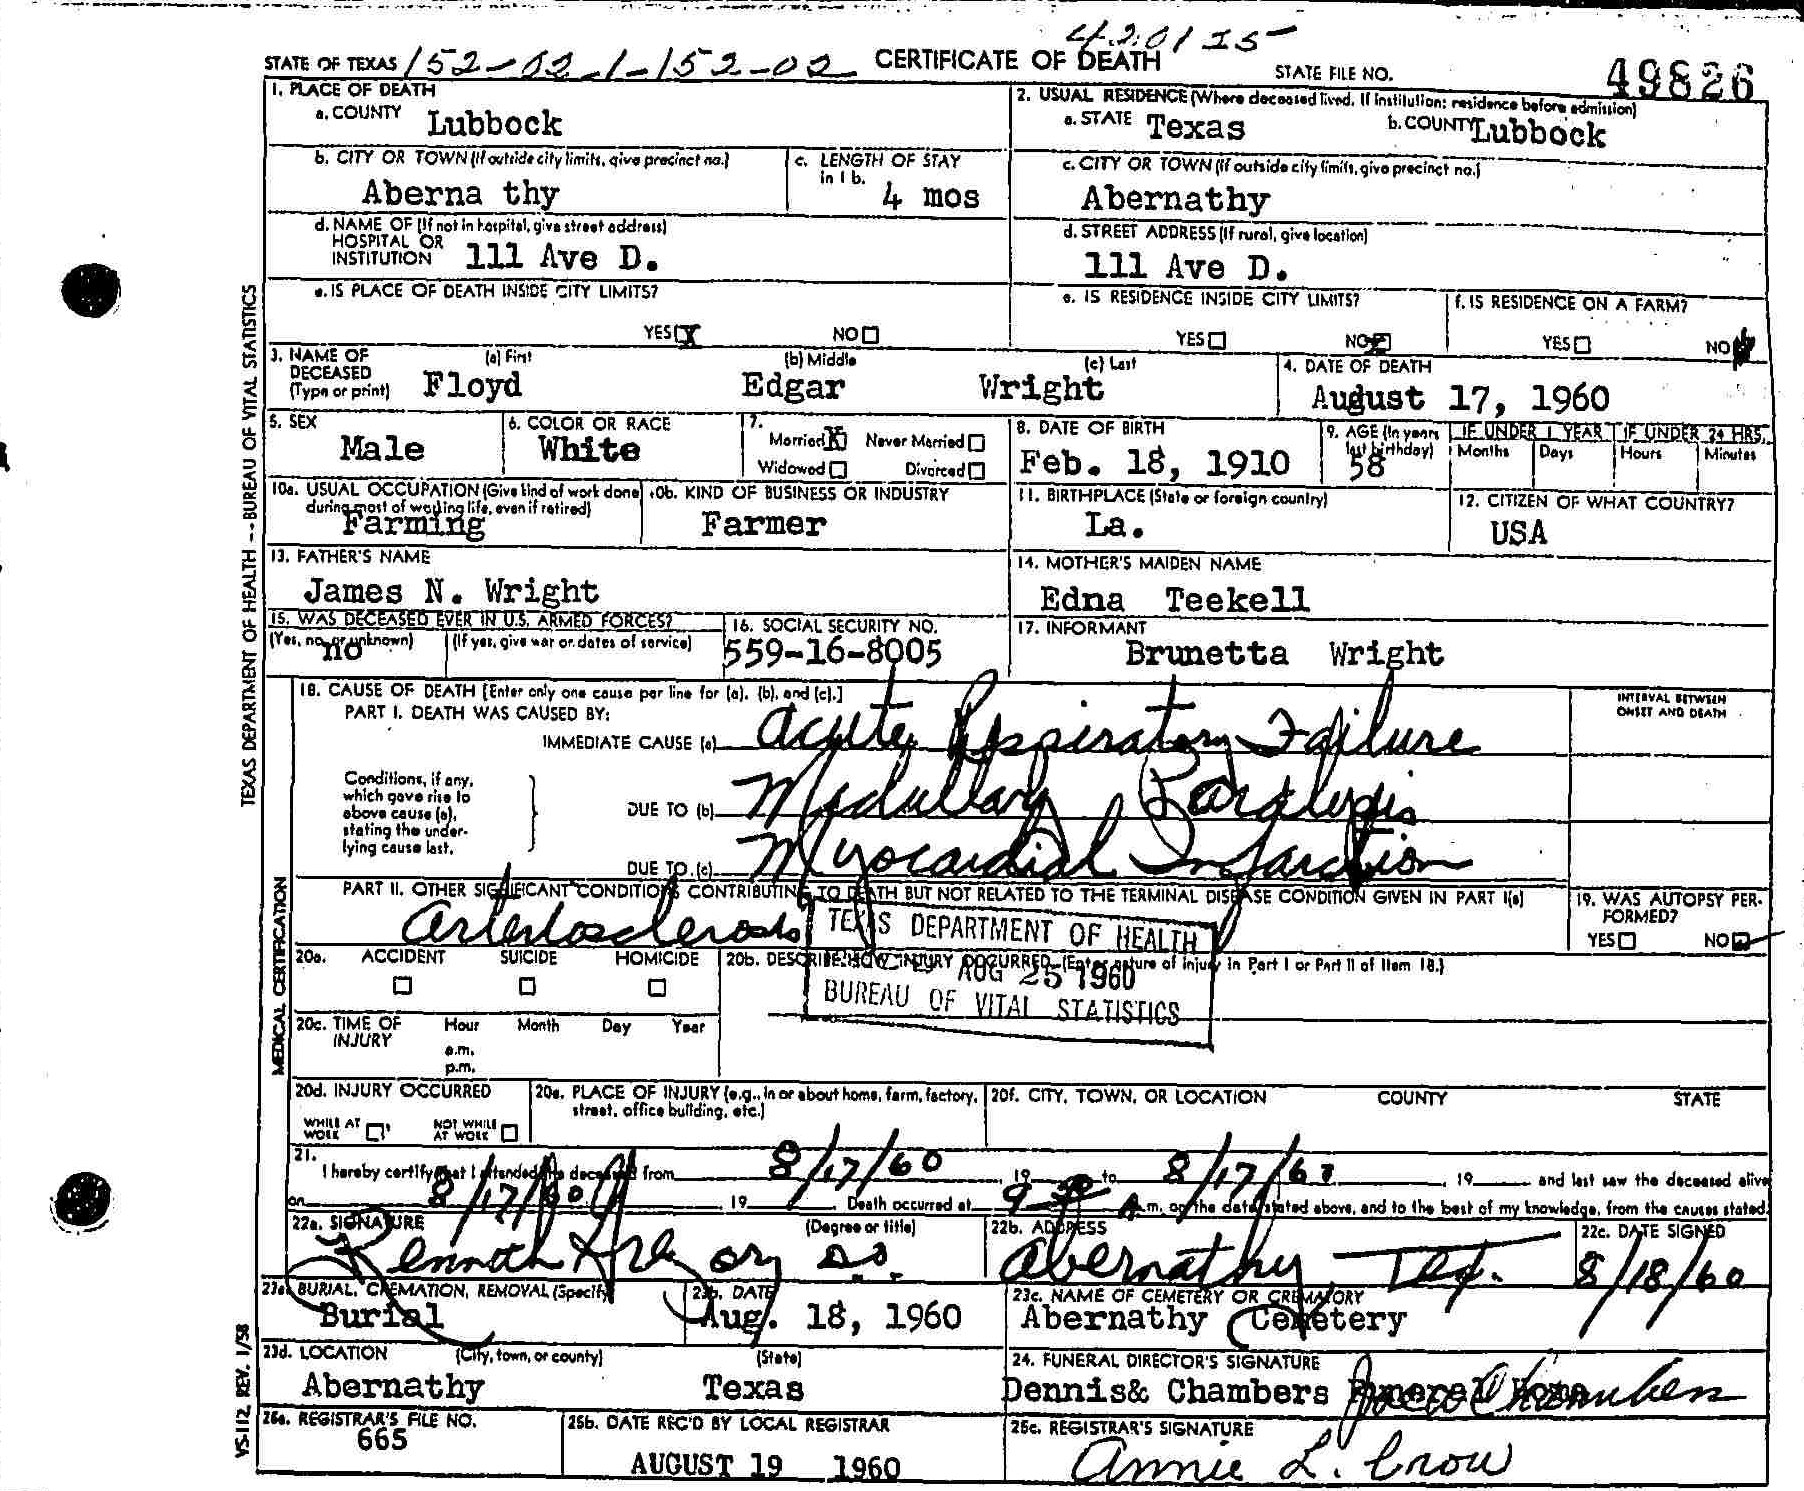 420115
STATE OF TEXAS 152-02-1-152-02 CERTIFICATE OF DEATH STATE FILE NO. 49826
1. PLACE OF DEATH
a. COUNTY Lubbock
2. USUAL RESIDENCE (Where deceased lived. If institution: residence before admission)
a. STATE Texas b. COUNTY Lubbock
b. CITY OR TOWN (If outside city limits, give precinct no.)
Aberna thy
c. LENGTH OF STAY
in 1 b.
4 mos
c. CITY OR TOWN (If outside city limits, give precinct no.)
Abernathy
d. NAME OF (If not in hospital, give street address)
HOSPITAL OR
INSTITUTION 111 Ave D.
d. STREET ADDRESS (If rural, give location)
111 Ave D.
e. IS PLACE OF DEATH INSIDE CITY LIMITS?
YES X NO
e. IS RESIDENCE INSIDE CITY LIMITS?
YES NO
f. IS RESIDENCE ON A FARM?
YES NO
3. NAME OF
DECEASED
(Type or print)
(a) First (b) Middle (c) Last
Floyd Edgar Wright
4. DATE OF DEATH
August 17, 1960
5. SEX
Male
6. COLOR OR RACE
White
7.
Married X Never Married
Widowed Divorced
8. DATE OF BIRTH
Feb. 18, 1910
9. AGE (In years
last birthday)
58
IF UNDER 1 YEAR IF UNDER 24 HRS.
Months Days Hours Minutes
10a. USUAL OCCUPATION (Give kind of work done
during most of working life, even if retired)
Farming
10b. KIND OF BUSINESS OR INDUSTRY
Farmer
11. BIRTHPLACE (State or foreign country)
La.
12. CITIZEN OF WHAT COUNTRY?
USA
13. FATHER'S NAME
James N. Wright
14. MOTHER'S MAIDEN NAME
Edna Teekell
15. WAS DECEASED EVER IN U.S. ARMED FORCES?
(Yes, no, or unknown) (If yes, give war or dates of service)
no
16. SOCIAL SECURITY NO.
559-16-8005
17. INFORMANT
Brunetta Wright
18. CAUSE OF DEATH [Enter only one cause per line for (a), (b), and (c).]
PART I. DEATH WAS CAUSED BY:
IMMEDIATE CAUSE (a) Acute Respiratory Failure
INTERVAL BETWEEN
ONSET AND DEATH
Conditions, if any,
which gave rise to
above cause (a),
stating the under-
lying cause last.
DUE TO (b) Medullary Paralysis
DUE TO (c) Myocardial Infarction
PART II. OTHER SIGNIFICANT CONDITIONS CONTRIBUTING TO DEATH BUT NOT RELATED TO THE TERMINAL DISEASE CONDITION GIVEN IN PART I(a)
Arteriosclerosis
19. WAS AUTOPSY PER-
FORMED?
YES NO
TEXAS DEPARTMENT OF HEALTH
AUG 25 1960
BUREAU OF VITAL STATISTICS
20a. ACCIDENT SUICIDE HOMICIDE
20b. DESCRIBE HOW INJURY OCCURRED. (Enter nature of injury in Part I or Part II of Item 18.)
20c. TIME OF
INJURY
Hour Month Day Year
a.m.
p.m.
20d. INJURY OCCURRED
WHILE AT
WORK
NOT WHILE
AT WORK
20e. PLACE OF INJURY (e.g., in or about home, farm, factory,
street, office building, etc.)
20f. CITY, TOWN, OR LOCATION COUNTY STATE
21.
I hereby certify that I attended the deceased from 8/17/60 19 to 8/17/60, 19 and last saw the deceased alive
on 8/17/60 19 . Death occurred at 9 30 A.m. on the date stated above, and to the best of my knowledge, from the causes stated.
22a. SIGNATURE (Degree or title)
Kenneth Gregory D.O.
22b. ADDRESS
Abernathy Tex.
22c. DATE SIGNED
8/18/60
23a. BURIAL, CREMATION, REMOVAL (Specify)
Burial
23b. DATE
Aug. 18, 1960
23c. NAME OF CEMETERY OR CREMATORY
Abernathy Cemetery
23d. LOCATION (City, town, or county) (State)
Abernathy Texas
24. FUNERAL DIRECTOR'S SIGNATURE
Dennis& Chambers Funeral Home
25a. REGISTRAR'S FILE NO.
665
25b. DATE REC'D BY LOCAL REGISTRAR
AUGUST 19 1960
25c. REGISTRAR'S SIGNATURE
Annie L. Crow
TEXAS DEPARTMENT OF HEALTH -- BUREAU OF VITAL STATISTICS
MEDICAL CERTIFICATION
VS-112, REV. 1/58